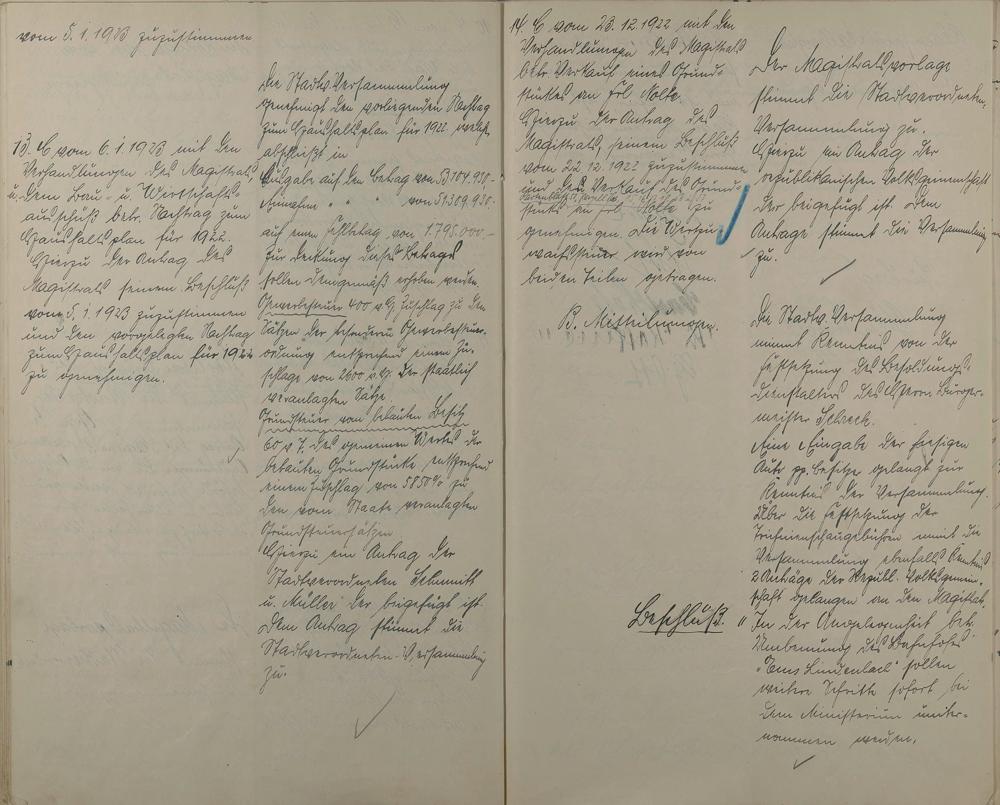 vom 5.1.1923 zuzustimmen
13. C vom 6.1.1923 mit den
Verhandlungen des Magistrats
u. dem Bau- u. Wirtschafts-
ausschuß betr. Nachtrag zum
Haushaltsplan für 1922.
Hierzu der Antrag des
Magistrats seinem Beschluß
vom 5.1.1923 zuzustimmen
und den vorgelegten Nachtrag
zum Haushaltsplan für 1922
zu genehmigen.
Die Stadtv. Versammlung
genehmigt den vorliegenden Nachtrag
zum Haushaltsplan für 1922 welcher
abschließt in
Ausgabe auf den Betrag von 53104.930.-
Einnahme " " " von 51309.930.-
auf einen Fehlbetrag von 1.795.000.-
Zur Deckung dieses Betrags
sollen demgemäß erhoben werden.
Gewerbesteuer 400 v.H. Zuschlag zu den
Sätzen der besonderen Gewerbesteuer-
ordnung entsprechend einem Zu-
schlage von 2600 v.H. der staatlich
veranlagten Sätze
Grundsteuer vom bebauten Besitz
60 v T. des gemeinen Wertes der
bebauten Grundstücke entsprechend
einem Zuschlag von 5850% zu
den vom Staate veranlagten
Grundsteuersätzen
Hierzu ein Antrag der
Stadtverordneten Schmitt
u. Müller der beigefügt ist.
Dem Antrag stimmt die
Stadtverordneten-Versammlung
zu.
14. C vom 23.12.1922 mit den
Verhandlungen des Magistrats
betr. Verkauf eines Grund-
stückes an Frl. Nolte.
Hierzu der Antrag des
Magistrats, seinem Beschluß
vom 22.12.1922 zuzustimmen
und den Verkauf des Grund-
stücks an Frl. Nolte zu
genehmigen. Die Wertzu-
wachssteuer wird von
beiden Teilen getragen.
B. Mitteilungen.
Beschluß. "
Der Magistratsvorlage
stimmt die Stadtverordneten-
Versammlung zu.
Hierzu ein Antrag der
republikanischen Volksgemeinschaft
der beigefügt ist. Dem
Antrage stimmt die Versammlung
zu.
Die Stadtv. Versammlung
nimmt Kenntnis von der
Festsetzung des Besoldungs-
dienstalters des Herrn Bürger-
meister Schreck.
Eine Eingabe der hiesigen
Auto pp. Besitzer gelangt zur
Kenntnis der Versammlung.
Über die Festsetzung der
Trichinenschaugebühren nimmt die
Versammlung ebenfalls Kenntnis
2 Anträge der Republ. Volksgemein-
schaft gelangen an den Magistrat.
In der Angelegenheit betr.
Umbenennung des Bahnhofes
"Ems Lindenbach" sollen
weitere Schritte sofort bei
dem Ministerium unter-
nommen werden.